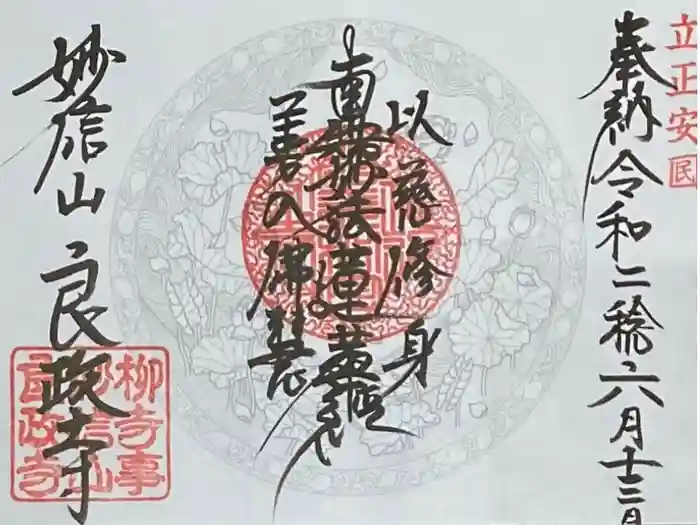 立正安国
奉納 令和二稔六月十三日
以慈修身
南無妙法蓮華経
善入佛慧
妙信山 良政寺
柳寺事
妙信山
良政寺